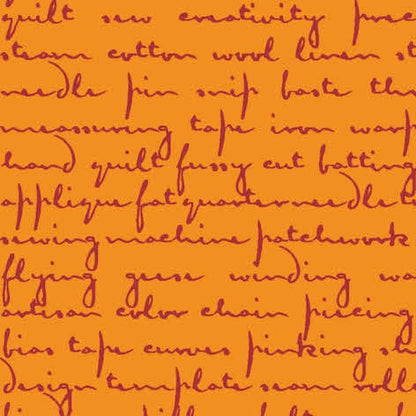 quilt sew creativity
steam cotton wool linen
needle pin snip baste
meassuring tape iron warp
hand quilt fussy cut batting
applique fat quarter needle
sewing machine patchwork
flying geese winding
artisan color chain piecing
bias tape curves pinking
design template seam roll